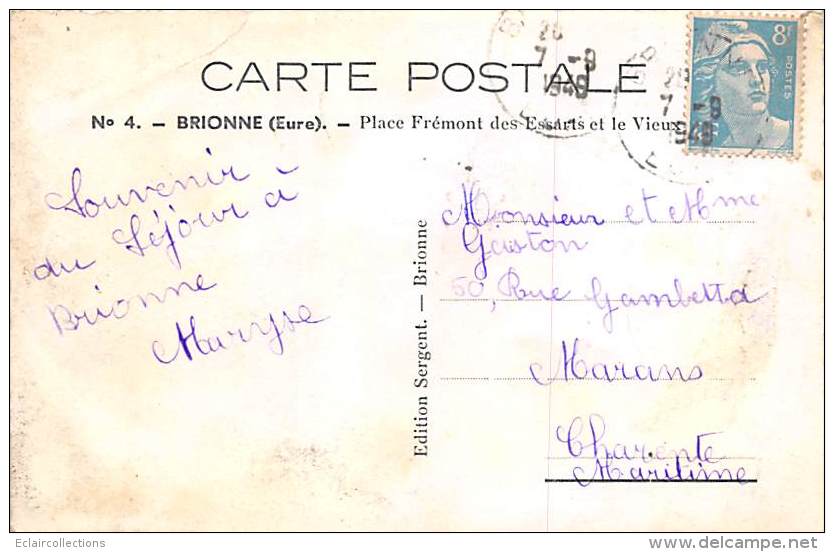 CARTE POSTALE
No 4. — BRIONNE (Eure). — Place Frémont des Essarts et le Vieux
8F
POSTES
20
7 -9
1949
20
7 -9
1949
Souvenir
du Séjour à
Brionne
Maryse
Edition Sergent. — Brionne
Monsieur et Mme
Gaston
50, Rue Gambetta
Marans
Charente
Maritime
Eclaircollections
www.delcampe.net